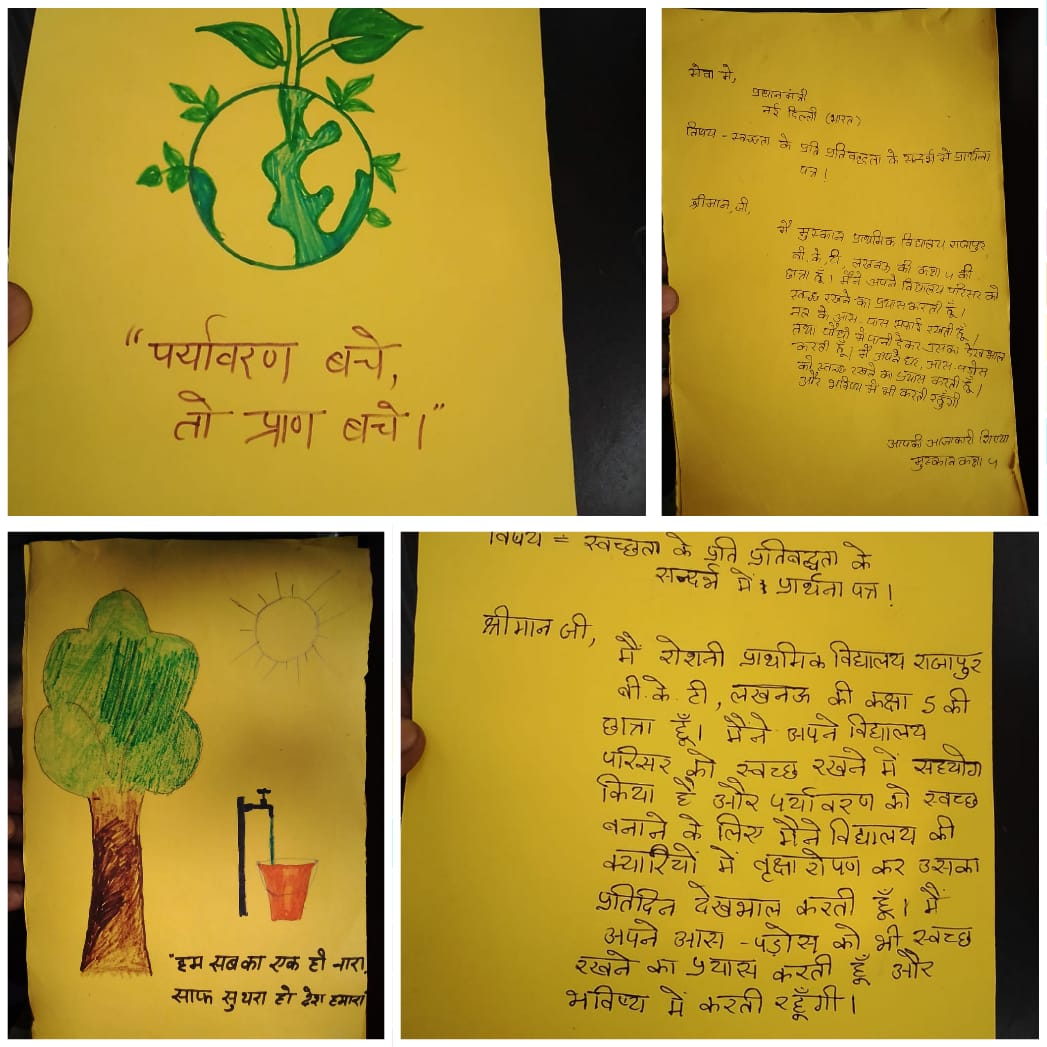 "पर्यावरण बचे,
तो प्राण बचे।"
सेवा में,
प्रधानमंत्री
नई दिल्ली (भारत)
विषय - स्वच्छता के प्रति प्रतिबद्धता के सन्दर्भ में प्रार्थना
पत्र !
श्रीमान जी,
मैं मुस्कान प्राथमिक विद्यालय राजापुर
बी.के.टी, लखनऊ की कक्षा 5 की
छात्रा हूँ। मैंने अपने विद्यालय परिसर को
स्वच्छ रखने का प्रयास करती हूँ।
नल के आस-पास सफाई रखती हूँ।
तथा पौधों में पानी देकर उसका देखभाल
करती हूँ। मैं अपने घर, आस-पड़ोस
को स्वच्छ रखने का प्रयास करती हूँ।
और भविष्य में भी करती रहूँगी
आपकी आज्ञाकारी शिष्या
मुस्कान कक्षा 5
"हम सबका एक ही नारा,
साफ सुथरा हो देश हमारा
विषय = स्वच्छता के प्रति प्रतिबद्धता के
सन्दर्भ में प्रार्थना पत्र !
श्रीमान जी,
मैं रोशनी प्राथमिक विद्यालय राजापुर
बी.के.टी, लखनऊ की कक्षा 5 की
छात्रा हूँ। मैंने अपने विद्यालय
परिसर को स्वच्छ रखने में सहयोग
किया है और पर्यावरण को स्वच्छ
बनाने के लिए मैंने विद्यालय की
क्यारियों में वृक्षारोपण कर उसका
प्रतिदिन देखभाल करती हूँ। मैं
अपने आस-पड़ोस को भी स्वच्छ
रखने का प्रयास करती हूँ और
भविष्य में करती रहूँगी।